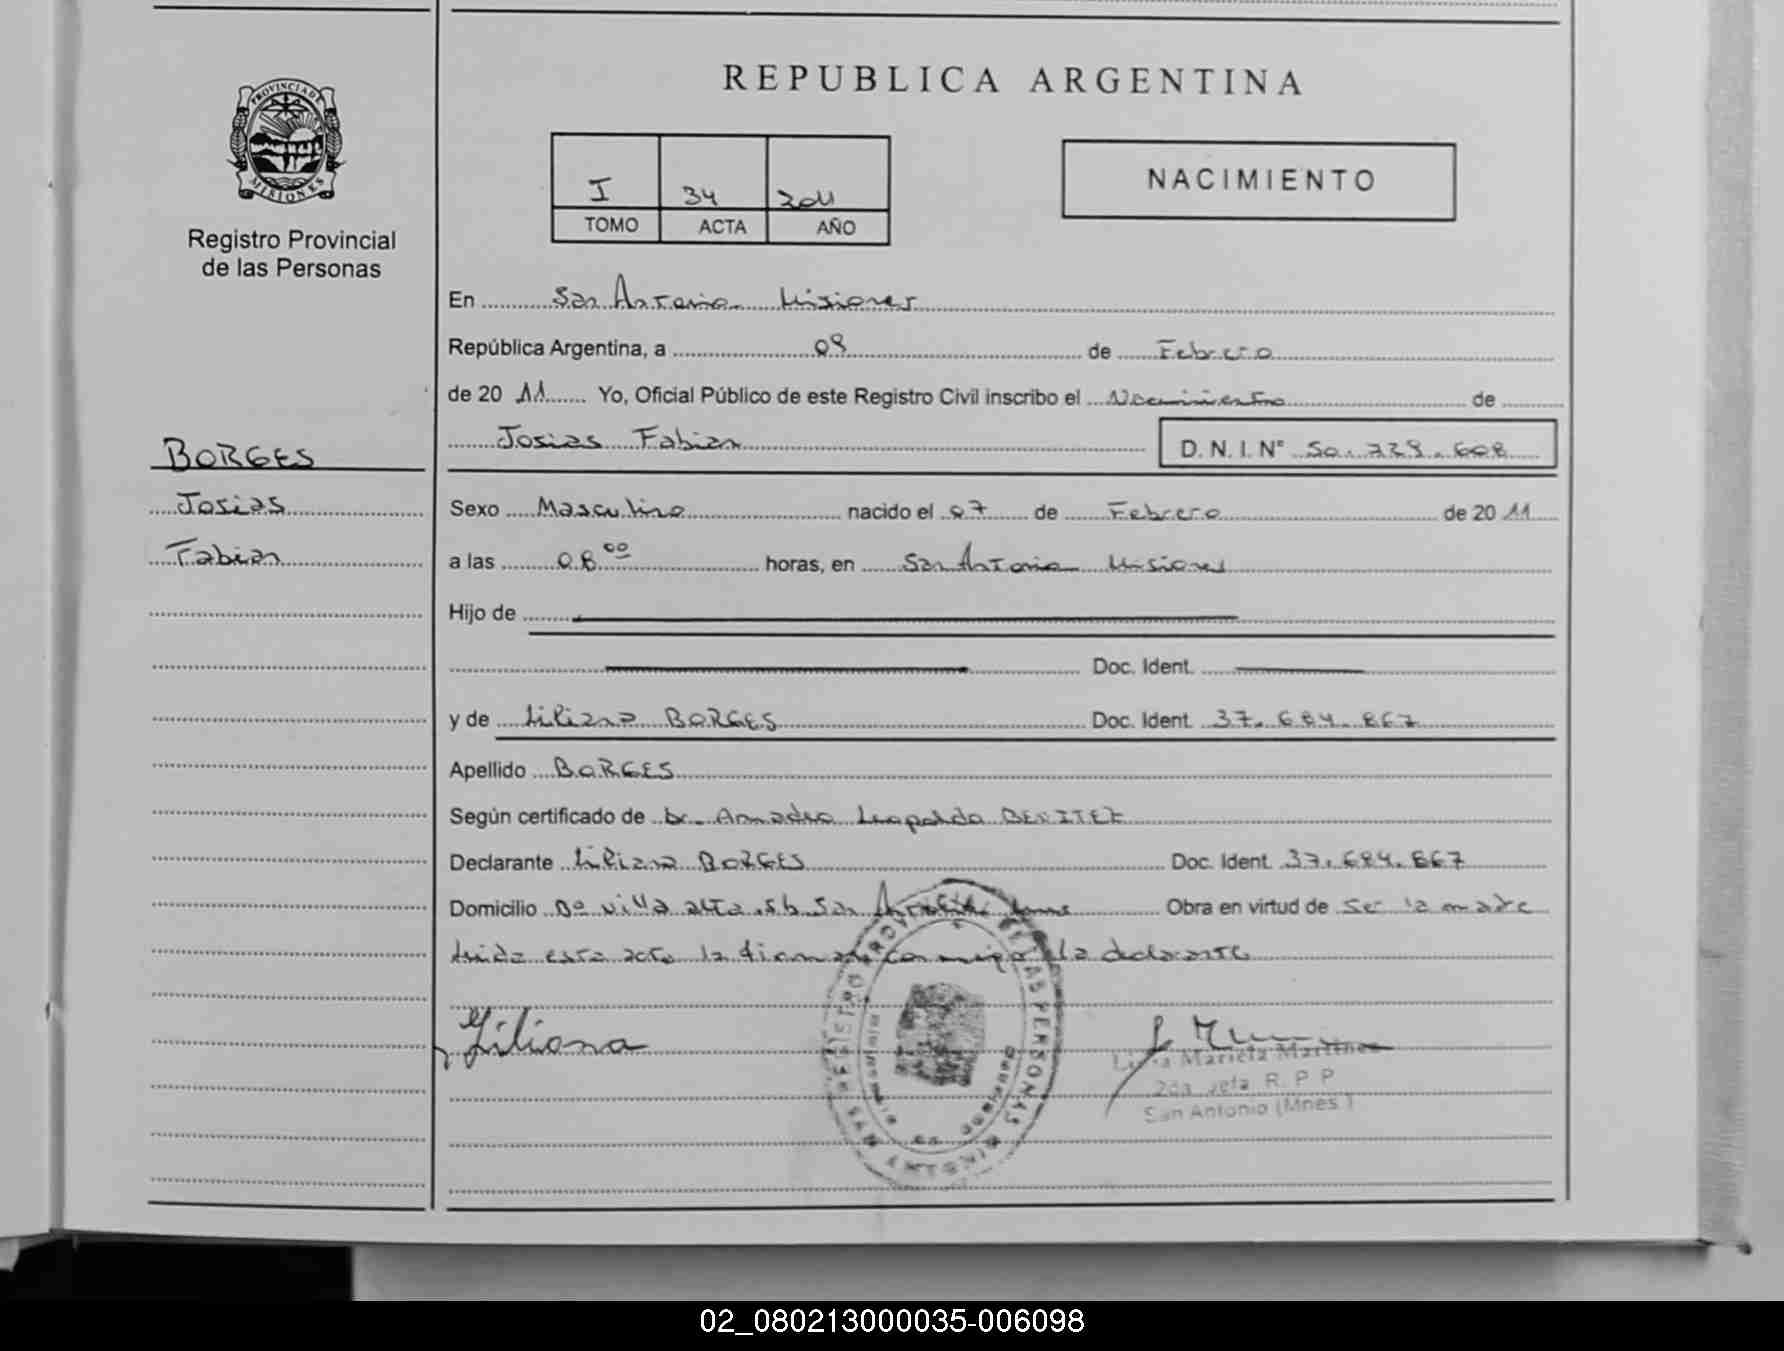 REPUBLICA ARGENTINA
PROVINCIA DE
MISIONES
Registro Provincial
de las Personas
I 34 2011
TOMO ACTA AÑO
NACIMIENTO
En San Antonio Misiones
República Argentina, a 08 de Febrero
de 20 11 Yo, Oficial Público de este Registro Civil inscribo el Nacimiento de
Josias Fabian D. N. I. N° 50.729.608
BORGES
Josias
Fabian
Sexo Masculino nacido el 07 de Febrero de 20 11
a las 08 00 horas, en San Antonio Misiones
Hijo de
Doc. Ident.
y de Liliana BORGES Doc. Ident. 37.684.867
Apellido BORGES
Según certificado de Dr. Amadeo Leopoldo BENITEZ
Declarante Liliana BORGES Doc. Ident. 37.684.867
Domicilio Bº Villa alta s.b. San Antonio Obra en virtud de ser la madre
Leida esta acta la firma conmigo la declarante
Liliana
REGISTRO PROV. DE LAS PERSONAS
Mariela Martinez
2da Jefa R. P. P.
San Antonio (Mnes.)
02_080213000035-006098